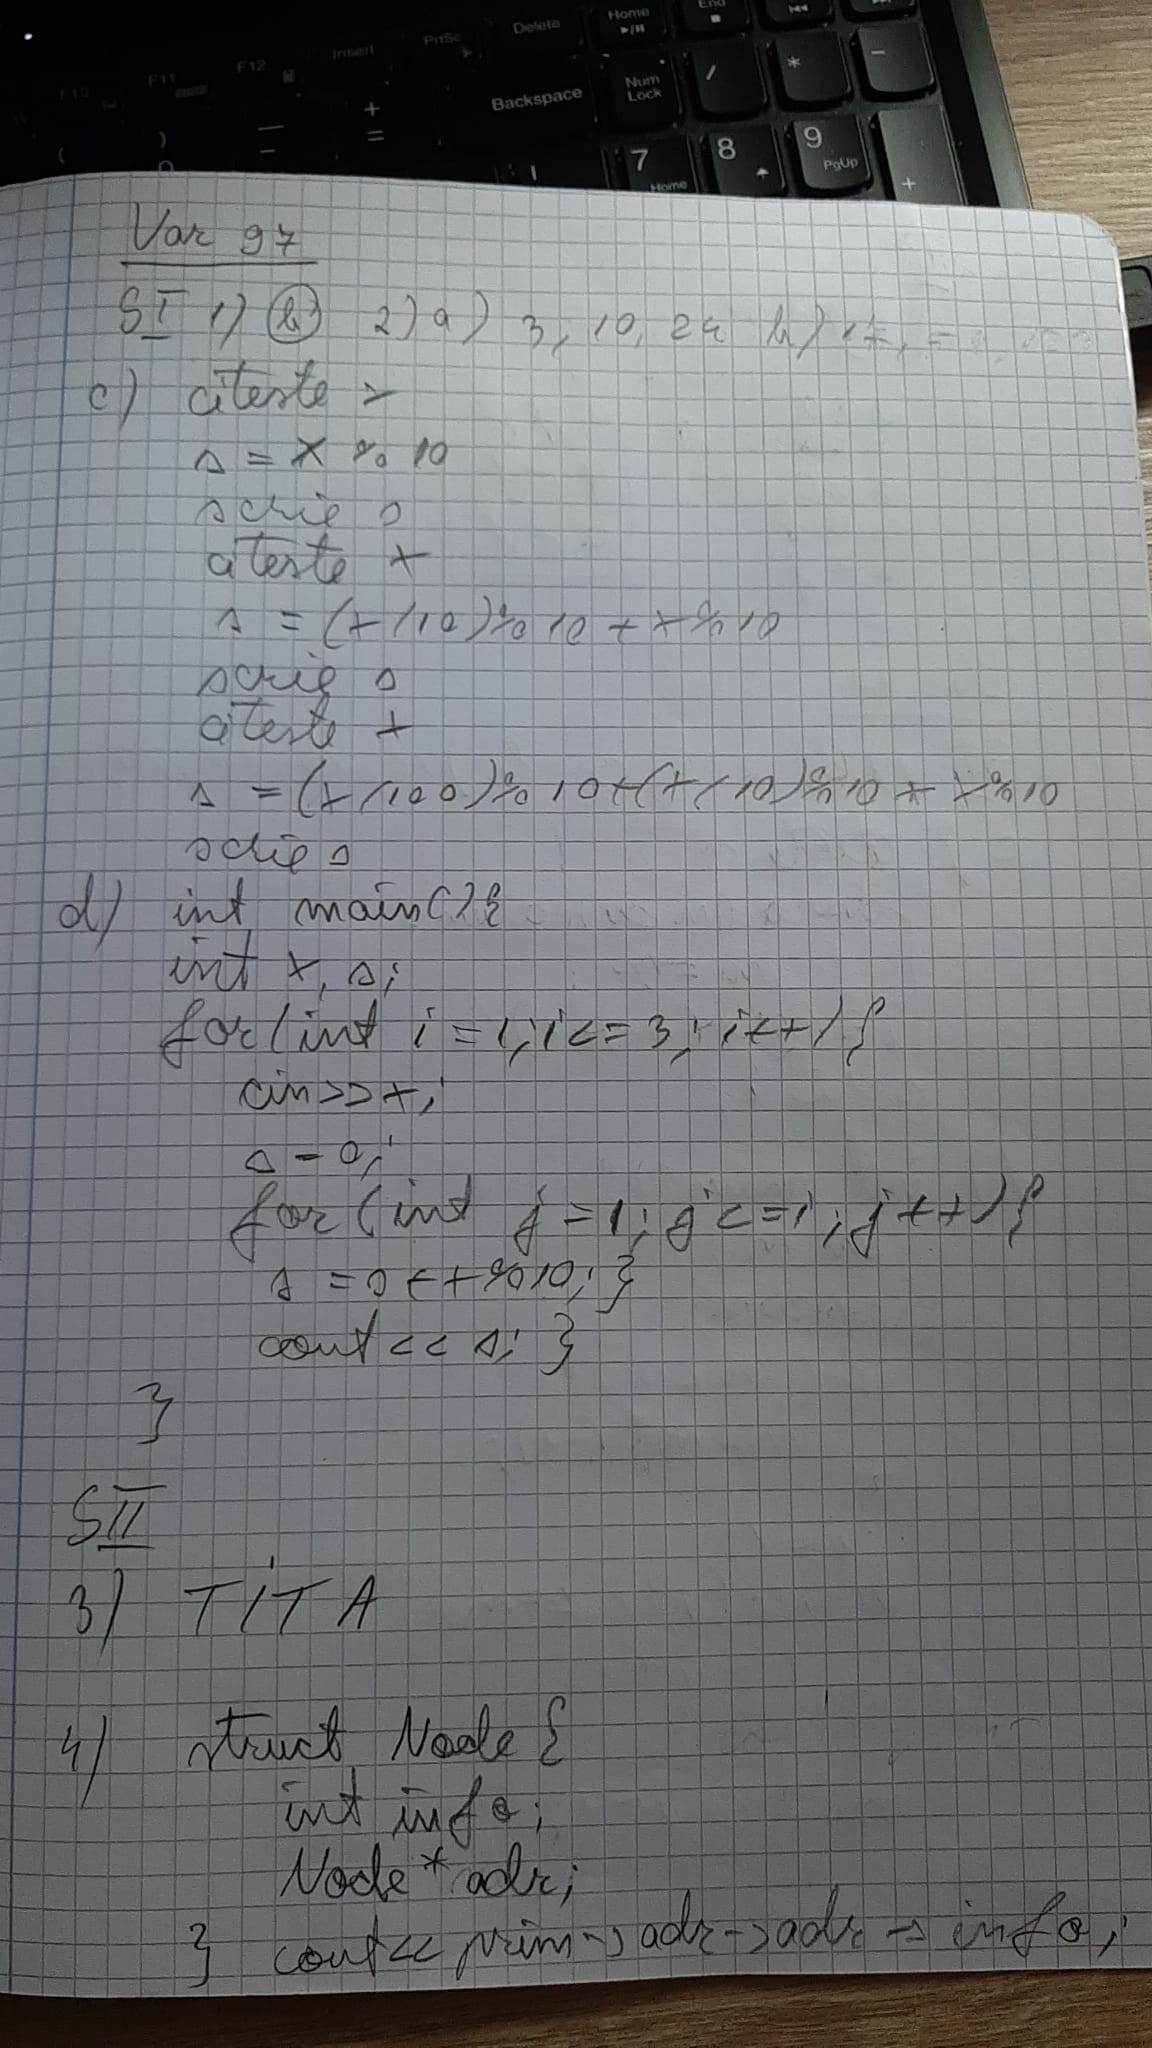 Delete
Home
End
Insert
PrtSc
F10
F11
F12
Backspace
Num Lock
/
*
-
+
=
7 Home
8
9 PgUp
+
Var 97
SI 1) b) 2) a) 3, 10, 24 b) 17,
c) citeste x
s = x % 10
scrie s
citeste x
s = (x/10)%10 + x%10
scrie s
citeste x
s = (x/100)%10+(x/10)%10 + x%10
scrie s
d) int main(){
int x, s;
for(int i=1;i<=3;i++){
cin>>x;
s=0;
for(int j=1;j<=i;j++){
s=s+x%10;}
cout<<s;}
}
SII
3) TITA
4) struct Node {
int info;
Node* adr;
} cout<<prim->adr->adr->info;